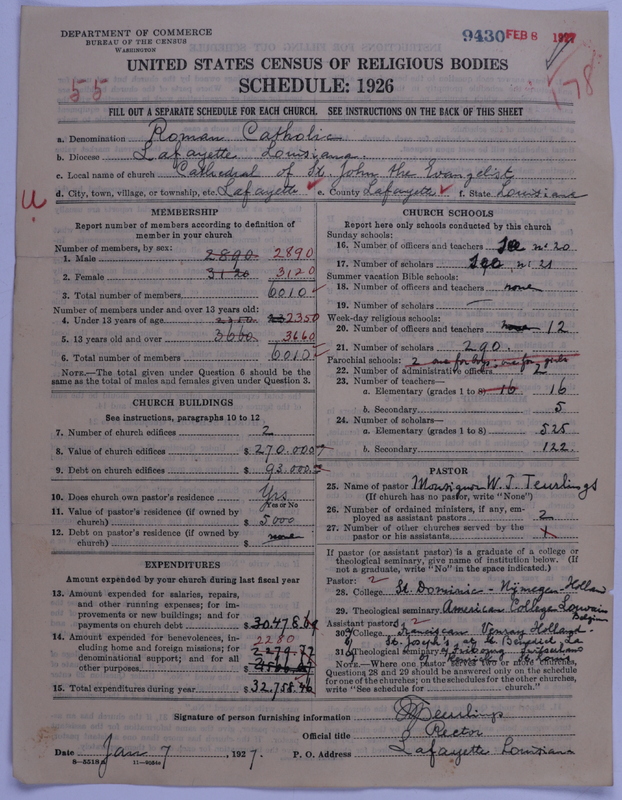 DEPARTMENT OF COMMERCE
BUREAU OF THE CENSUS
WASHINGTON
9430 FEB 8 1927
178
55
UNITED STATES CENSUS OF RELIGIOUS BODIES
SCHEDULE: 1926
FILL OUT A SEPARATE SCHEDULE FOR EACH CHURCH. SEE INSTRUCTIONS ON THE BACK OF THIS SHEET
a. Denomination Roman Catholic
b. Diocese Lafayette Louisiana.
c. Local name of church Cathedral of St. John the Evangelist
d. City, town, village, or township, etc. Lafayette e. County Lafayette f. State Louisiana
MEMBERSHIP
Report number of members according to definition of member in your church
Number of members, by sex:
1. Male 2890 2890
2. Female 3120 3120
3. Total number of members 6010
Number of members under and over 13 years old:
4. Under 13 years of age 2350
5. 13 years old and over 3660 3660
6. Total number of members 6010
NOTE.—The total given under Question 6 should be the same as the total of males and females given under Question 3.
CHURCH BUILDINGS
See instructions, paragraphs 10 to 12
7. Number of church edifices 2
8. Value of church edifices $ 270.000
9. Debt on church edifices $ 93.000
10. Does church own pastor's residence Yes
Yes or No
11. Value of pastor's residence (if owned by church) $ 5000
12. Debt on pastor's residence (if owned by church) $ none
EXPENDITURES
Amount expended by your church during last fiscal year
13. Amount expended for salaries, repairs, and other running expenses; for improvements or new buildings; and for payments on church debt $ 30.478.69
14. Amount expended for benevolences, including home and foreign missions; for denominational support; and for all other purposes 2280
2279.77
15. Total expenditures during year $ 32,758.46
CHURCH SCHOOLS
Report here only schools conducted by this church
Sunday schools:
16. Number of officers and teachers See no 20
17. Number of scholars See no 21
Summer vacation Bible schools:
18. Number of officers and teachers none
19. Number of scholars —
Week-day religious schools:
20. Number of officers and teachers none 12
21. Number of scholars 290.
Parochial schools: 2 one for boys, one for girls
22. Number of administrative officers 2
23. Number of teachers—
a. Elementary (grades 1 to 8) 16 16
b. Secondary 5
24. Number of scholars—
a. Elementary (grades 1 to 8) 525
b. Secondary 122.
PASTOR
25. Name of pastor Monsignor W. J. Teurlings
(If church has no pastor, write "None")
26. Number of ordained ministers, if any, employed as assistant pastors 2
27. Number of other churches served by the pastor or his assistants
If pastor (or assistant pastor) is a graduate of a college or theological seminary, give name of institution below. (If not a graduate, write "No" in the space indicated.)
Pastor: 2
28. College St. Dominic - Nijmegen - Holland
29. Theological seminary American College Louvain Belgium
Assistant pastor: 2
30. College Franciscan Venray Holland -
St. Joseph's at St. Benedict La
31. Theological seminary Fribourg Switzerland
St. Louis
NOTE.—Where one pastor serves two or more churches, Questions 28 and 29 should be answered only on the schedule for one of the churches; on the schedules for the other churches, write "See schedule for church."
Signature of person furnishing information WJTeurlings
Official title Rector
Date Jan 7, 1927. P. O. Address Lafayette Louisiana
8—5518 11—9054